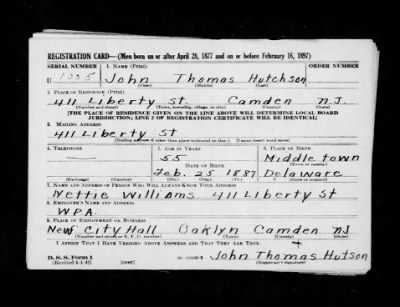 REGISTRATION CARD—(Men born on or after April 28, 1877 and on or before February 16, 1897)
SERIAL NUMBER 1. NAME (Print) ORDER NUMBER
U 1005 John Thomas Hutchson
2. PLACE OF RESIDENCE (Print)
411 Liberty St Camden N.J.
(Number and street) (Town, township, village, or city) (County) (State)
[THE PLACE OF RESIDENCE GIVEN ON THE LINE ABOVE WILL DETERMINE LOCAL BOARD
JURISDICTION; LINE 2 OF REGISTRATION CERTIFICATE WILL BE IDENTICAL]
3. MAILING ADDRESS
411 Liberty St
[Mailing address if other than place indicated on line 2. If same insert word same]
4. TELEPHONE 5. AGE IN YEARS 6. PLACE OF BIRTH
55 Middletown
DATE OF BIRTH (Town or county)
Feb. 25 1887 Delaware
(Exchange) (Number) (Mo.) (Day) (Yr.) (State or country)
7. NAME AND ADDRESS OF PERSON WHO WILL ALWAYS KNOW YOUR ADDRESS
Nettie Williams 411 Liberty St
8. EMPLOYER'S NAME AND ADDRESS
WPA
9. PLACE OF EMPLOYMENT OR BUSINESS
New City Hall Oaklyn Camden NJ
(Number and street or R. F. D. number) (Town) (County) (State)
I AFFIRM THAT I HAVE VERIFIED ABOVE ANSWERS AND THAT THEY ARE TRUE.
D. S. S. Form 1
(Revised 4-1-42) (over) John Thomas Hutson
(Registrant's signature)